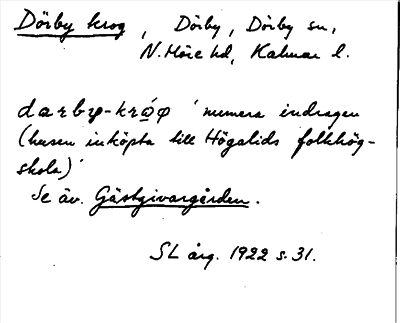 Dörby krog, Dörby, Dörby sn,
N. Möre hd, Kalmar l.
darby-krǿφ 'numera indragen
(husen inköpta till Högalids folkhög-
skola)'
Se äv. Gästgivargården.
SL årg. 1922 s. 31.